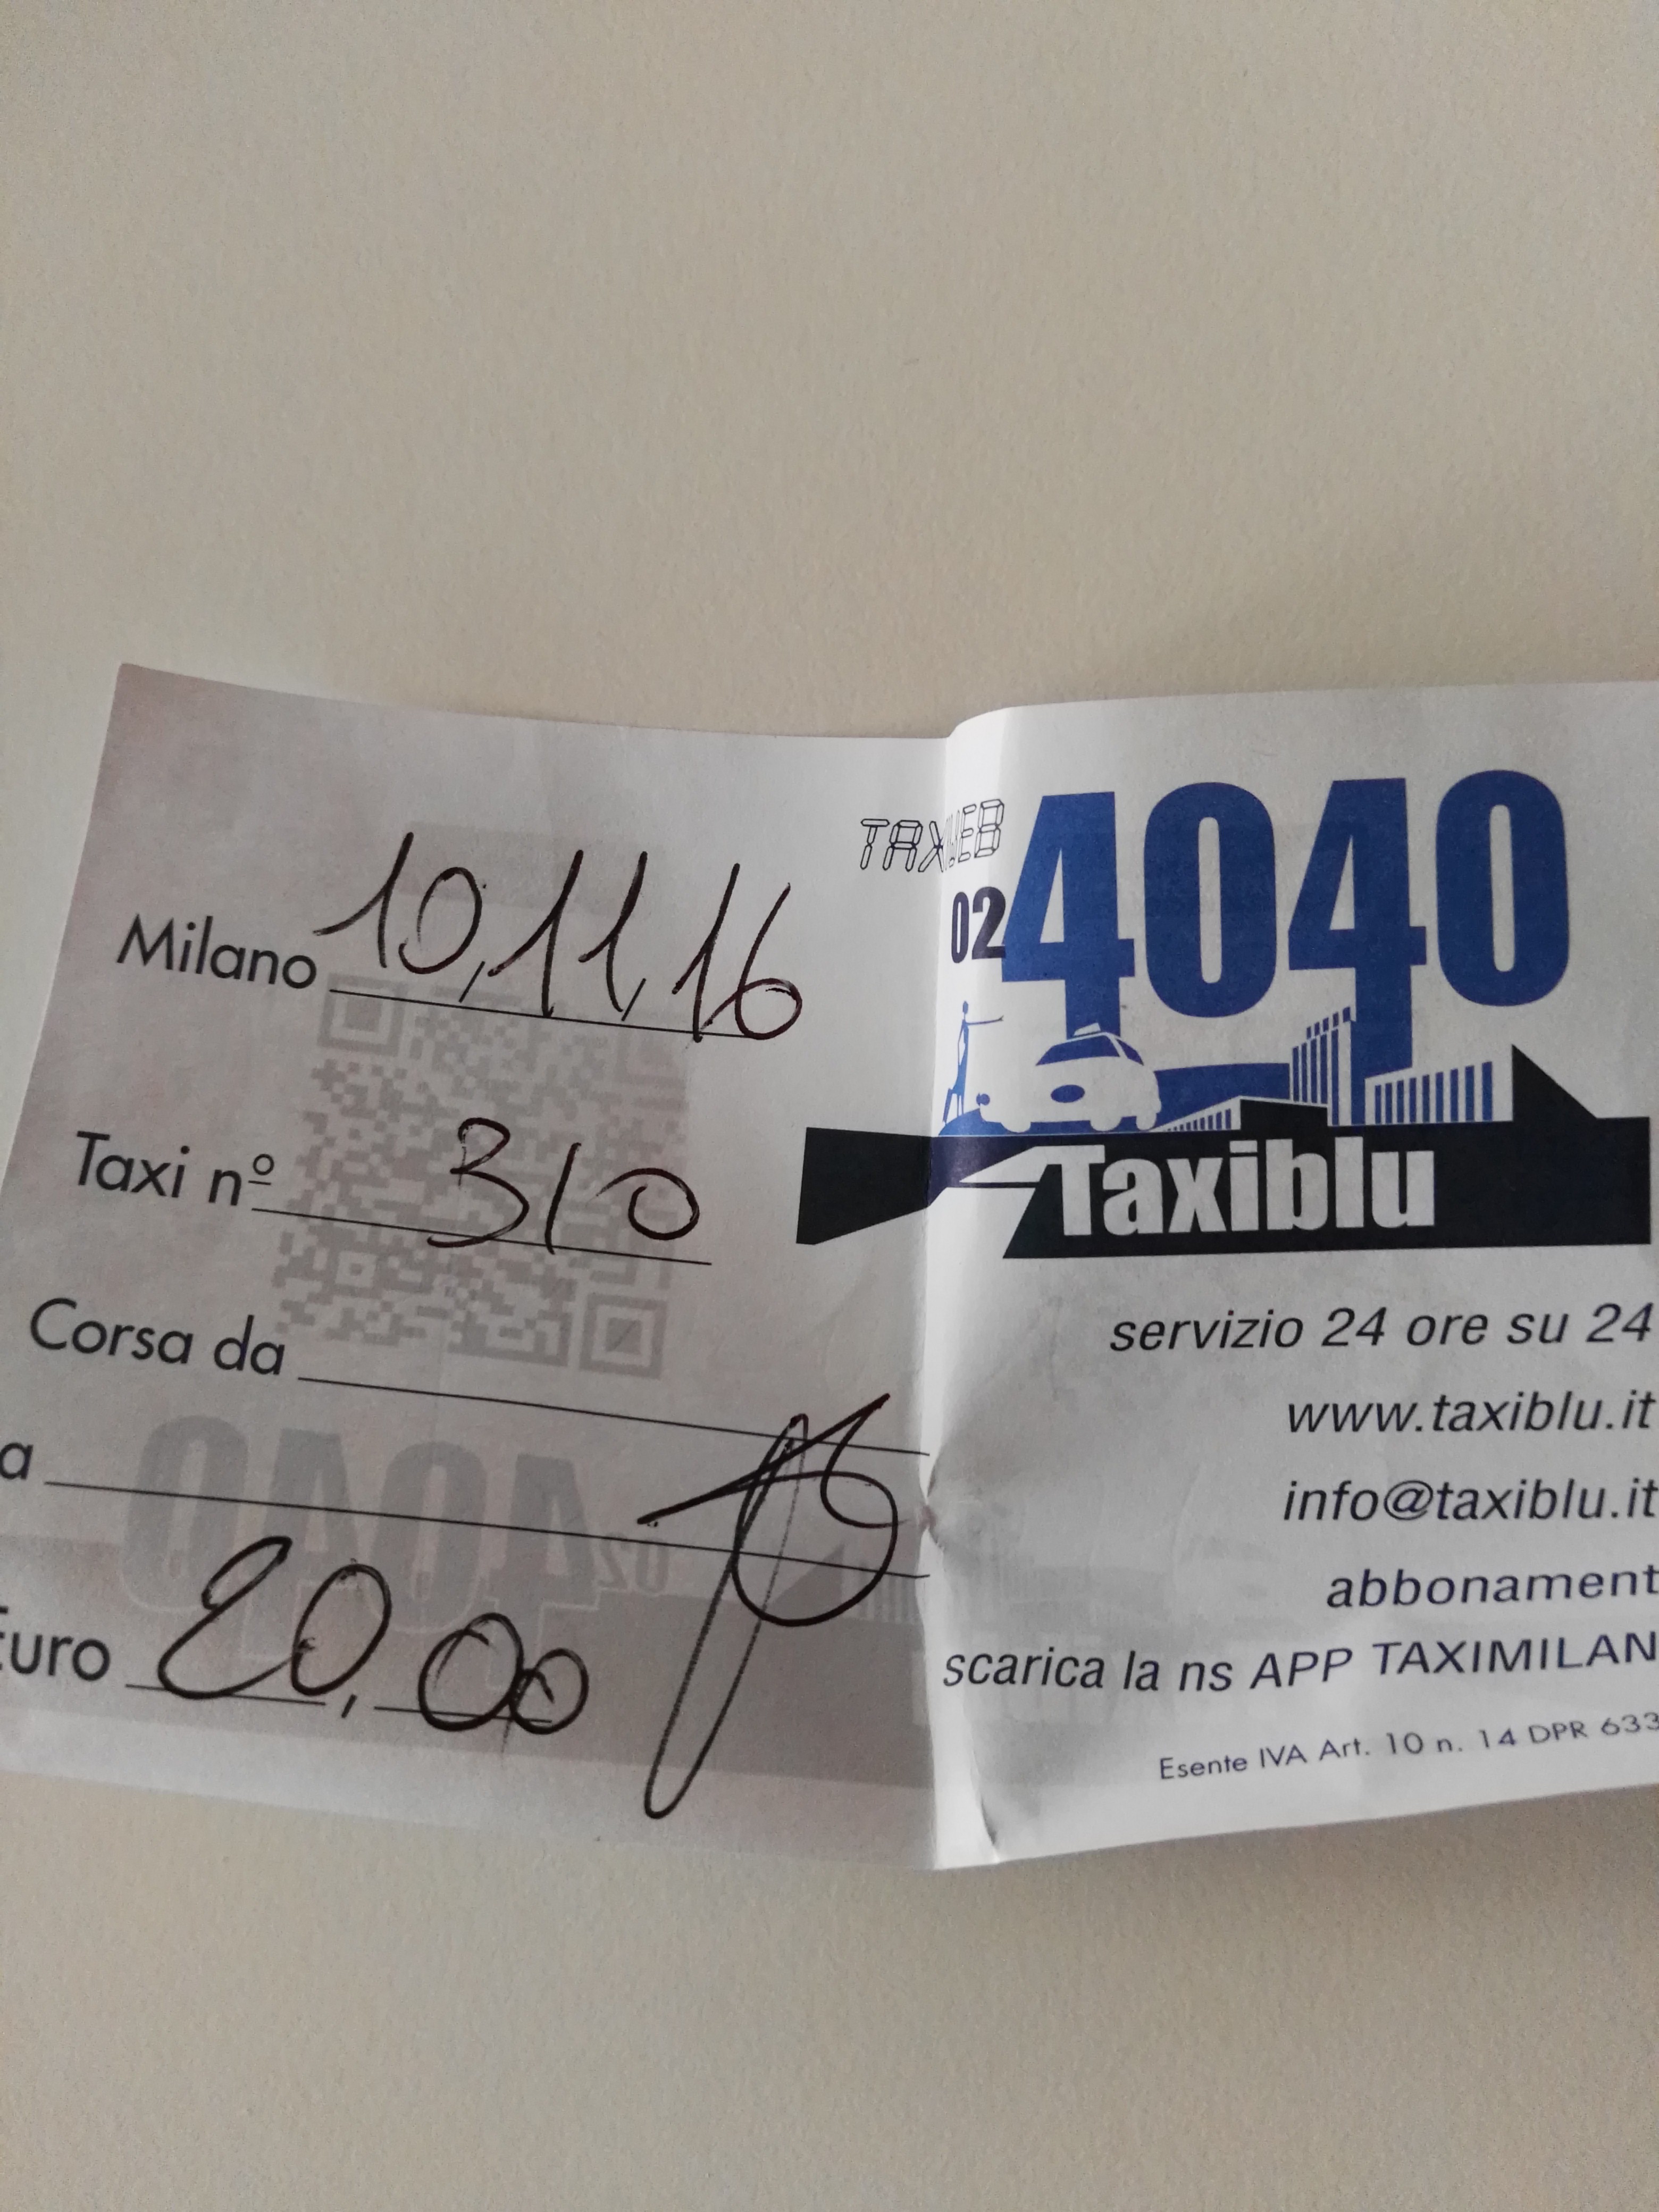 Milano 10,11,16
Taxi nº 310
Corsa da
a
Euro 20,00
TAXIWEB
02 4040
Taxiblu
servizio 24 ore su 24
www.taxiblu.it
info@taxiblu.it
abbonament
scarica la ns APP TAXIMILAN
Esente IVA Art. 10 n. 14 DPR 633